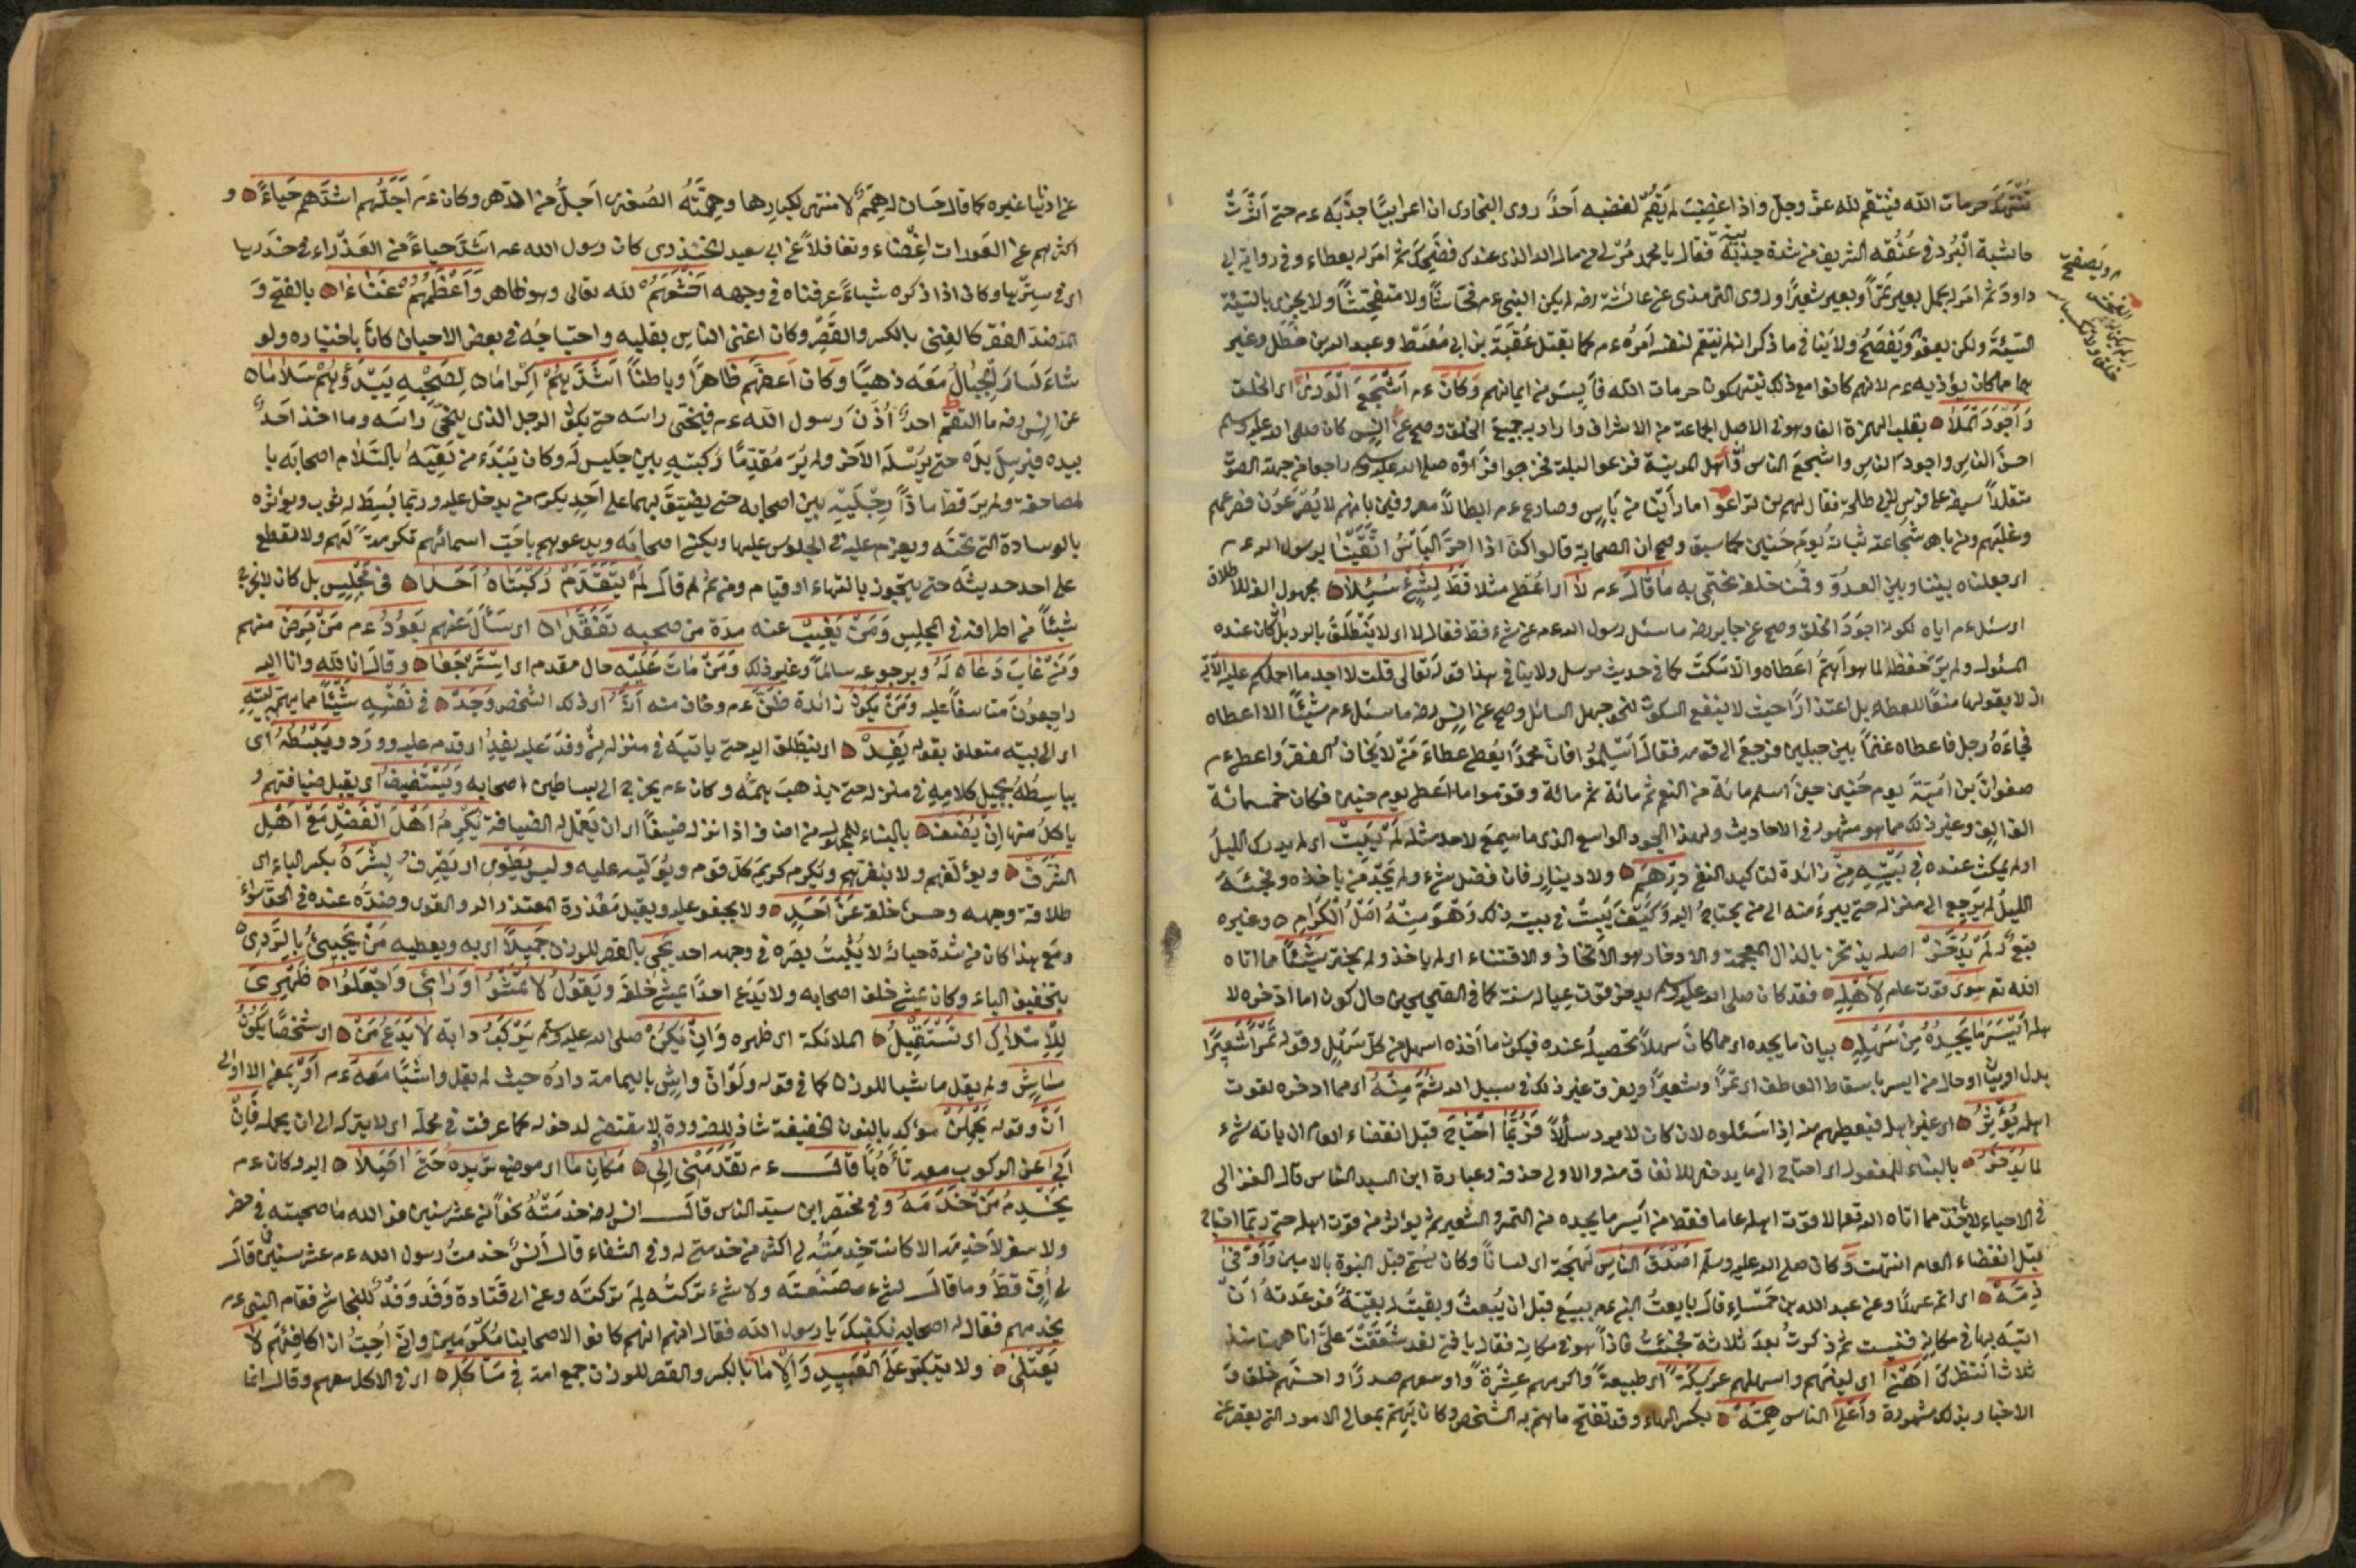 تنتهك حرمات الله فينتقم لله عز وجل واذا اغضب لم يقم لغضبه احد روى البخارى ان اعرابيا جذبه ء م حتى اثرت
حاشية البرد فى عنقه الشريف من شدة جذبته فقال يا محمد مر لى من مال الله الذى عندك فضحك ثم امر له بعطاء وفى رواية ابى
داود ثم امر له بحمل بعير تمرا وبعير شعيرا وروى الترمذى عن عائشة رضه لم يكن النبى ء م فحاشا ولا متفحشا ولا يجزى بالسيئة
السيئة ولكن يعفو ويفصح ولا ينافى ما ذكر انه لم ينتقم لنفسه امره ء م بقتل عقبة بن ابى معيط وعبد الله بن خطل وغير
هما مما كان يؤذيه ء م لانهم كانوا مع ذلك ينتهكون حرمات الله فايس من ايمانهم وكان ء م اشجع الورى اى الخلق
واجود الملا بقلب الهمزة الفا وهو فى الاصل الجماعة من الاشراف واراد به جميع الخلق وصح عن انس كان صلى الله عليه وسلم
احسن الناس واجود الناس واشجع الناس وان اهل المدينة فزعوا ليلة فخرجوا فراوه صلى الله عليه وسلم راجعا من جهة الصوت
متقلدا سيفه على فرس لابى طلحة فقال لهم لن تراعوا ما راينا من باس وصارع ء م ابطالا معروفين بانهم لا يصرعون فصرعهم
وغلبهم ومن باهر شجاعته ثباته يوم حنين كما سبق وصح ان الصحابة قالوا كنا اذا احمر الباس اتقينا برسول الله ء م
اى جعلناه بيننا وبين العدو وقمنا خلفه نحتمى به ما قال ء م لا اى اعطى مثلا قط لشئ سئلا مجهول الفه للاطلاق
اى سئل ء م اياه لكونه اجود الخلق وصح عن جابر رضه ما سئل رسول الله ء م عن شئ قط فقال لا اى لا ينطلق بالرد بل ان كان عنده
المسئول ولم ير حفظه لما هو اهم اعطاه والا سكت كما فى حديث مرسل ولا ينافى هذا قوله تعالى قلت لا اجد ما احملكم عليه الآية
اذ لا يقولها منعا للعطاء بل اعتذارا حيث لا ينفع السكوت لنحو جهل السائل وصح عن انس رضه ما سئل ء م شيئا الا اعطاه
فجاءه رجل فاعطاه غنما بين جبلين فرجع الى قومه فقال اسلموا فان محمدا يعطى عطاء من لا يخاف الفقر واعطى ء م
صفوان بن امية يوم حنين حين اسلم مائة من النعم ثم مائة ثم مائة وقوموا ما اعطى يوم حنين فكان خمسمائة
الف الف وغير ذلك مما هو مشهور فى الاحاديث ولهذا الجود الواسع الذى ما سمع لاحد مثله لم يبيت اى لم يدرك الليل
او لم يمكث عنده فى بيته من زائدة لتاكيد النفى درهم ولا دينار فان فضل شئ ولم يجد من ياخذه وفجئه
الليل لم يرجع الى منزله حتى يبرء منه الى من يحتاج اليه وكيف يبيت فى بيته ذلك وهو منه اصل الكرام وغيره
تبع له لم يدخر اصله يذتخر بالذال المعجمة والادخار هو الاتخاذ والاقتناء اى لم ياخذ ولم يختر شيئا مما اتاه
الله تع سوى قوت عام لاهله فقد كان صلى الله عليه وسلم يدخر قوت عياله سنة كما فى الصحيحين حال كون اما ادخره لا
هله ايسر ما يجده من سهله بيان ما يجده اى مما كان سهلا تحصيله عنده فيكون ما اخذه اسهل من كل سهل وقوله تمرا شعيرا
بدل او بيان او حال من ايسر باسقاط العاطف اى تمرا وشعيرا ويفرق غير ذلك فى سبيل الله ثم منه اى مما ادخره لقوت
اهله يؤثر اى غير اهله فيعطيهم منه اذا سئلوه لانه كان لا يرد سائلا فربما احتاج قبل انقضاء العام ان ياته شئ
لما يدخر بالبناء للمفعول اى احتاج الى ما يدخر للانفاق منه والاولى حذفه وعبارة ابن السيد الناس قال الغزالى
فى الاحياء لا ياخذ مما اتاه الله تعالى الا قوت اهله عاما فقط من ايسر ما يجده من التمر والشعير ثم يؤثر من قوت اهله حتى ربما احتاج
قبل انقضاء العام انتهت وكان صلى الله عليه وسلم اصدق الناس لهجة اى لسانا وكان يسمى قبل النبوة بالامين واوفى
ذمة اى اتم عهدا وعن عبد الله بن حمساء قال بايعت النبى ء م ببيع قبل ان يبعث وبقيت له بقية فوعدته ان
اتيه بها فى مكانه فنسيت ثم ذكرت بعد ثلاثة فجئت فاذا هو فى مكانه فقال يا فتى لقد شققت على انا ههنا منذ
ثلاث انتظرك اهـ اى لينهم واسهلهم عريكة اى طبيعة واكرمهم عشرة واوسعهم صدرا واحسنهم خلق و
الاخبار بذلك مشهورة واعلا الناس همة بكسر الهاء وقد تفتح ما هم به الشخص وكان يهتم بمعالى الامور التى يقصر عنها
عن ادناها غيره كما قال حسان له همم لا منتهى لكبارها وهمته الصغرى اجل من الدهر وكان ء م اجلهم اشدهم حياء و
اكثرهم عن العورات اغضاء وتغافلا عن ابى سعيد الخدرى كان رسول الله ء م اشد حياء من العذراء فى خدرها
اى فى سترها وكان اذا ذكره شياء عرفناه فى وجهه اخشعهم لله تعالى وهو ظاهر واعظمهم غناءا بالفتح و
المد ضد الفقر كالغنى بالكسر والقصر وكان اغنى الناس بقلبه واحتياجه فى بعض الاحيان كان باختياره ولو
شاء لسارت الجبال معه ذهبا وكان اعفهم ظاهرا وباطنا اشدهم اكراما لصحبه يبدؤهم سلاما
عن انس رضه ما التقم احد اذن رسول الله ء م فينحى راسه حتى يكون الرجل الذى ينحى راسه وما اخذ احد
بيده فيرسل يده حتى يرسله الآخذ ولم ير مقدما ركبتيه بين جليس له وكان يبدء من لقيه بالسلام اصحابه با
لمصاحفة ولم ير قط مادا رجليه بين اصحابه حتى يضيق بهما على احد يكرم من يدخل عليه وربما بسط له ثوب ويؤثره
بالوسادة التى تحته ويعزم عليه فى الجلوس عليها ويكنى اصحابه ويدعوهم باحب اسمائهم تكرمة لهم ولا يقطع
على احد حديثه حتى يتجوز بانتهاء او قيام ومن ثم قال لم يتقدم ركبتاه احدا فى مجلس بل كان لا يخرج
شيئا من اطرافه فى الجلس ومن يغيب عنه مدة من صحبه تفقدا اى سأل عنهم يعود ء م من مرض منهم
ومن غاب دعا له وبرجوعه سالما وغير ذلك ومن مات عليه حال مقدم اى استرجعا وقال انا لله وانا اليه
راجعون متاسفا عليه ومن يكون زائدة ظن ء م وخاف منه انه اى ذلك الشخص وجدا فى نفسه شيئا مما يهتم لبيته
اى الى بيته متعلق بقوله يفد اى ينطلق اليه حتى ياتيه فى منزله من وفد عليه يفد اى قدم عليه وورد ويبسطه اى
يباسطه بجميل كلامه فى منزله حتى يذهب همه وكان ء م يخرج الى بساطين اصحابه ويستضيف اى يقبل ضيافتهم و
ياكل منها ان يضف بالبناء للمجهول من اضاف اذا انزله ضيفا اى ان يعمل له الضيافة يكرم اهل الفضل مع اهل
الشرف ويؤلفهم ولا ينفرهم ويكرم كريم كل قوم ويوليه عليه وليس يطوى اى يصرف بشره بكسر الباء اى
طلاقة وجهه وحسن خلقه عن احد ولا يجفو عليه ويقبل معذرة المعتذر اليه والقوى وضده عنده فى الحق سواء
ومع هذا كان من شدة حيائه لا يثبت بصره فى وجه احد يجى بالقصر للوزن جميلا اى به ويعطيه من يجيئ بالردى
بتخفيف الياء وكان يمشى خلف اصحابه ولا يدع احدا يمشى خلفه ويقول لا تمشوا ورائى واجعلوا ظهرى
للاملاك اى تستقبل الملائكة اى ظهره وان يكن صلى الله عليه وسلم يركب دابة لا يدع من اى شخصا يكون
ماش ولم يقل ماشيا للوزن كما فى قوله ولو ان واش باليمامة داره حيث لم يقل واشيا معه ء م او بمعنى الا اولى
ان وقوله يحملن مؤكد بالنون الخفيفة شاذ للضرورة لا مقتضى لدخوله كما عرفت فى محله اى لا يتركه الى ان يحمله فان
ابى عن الركوب معه تأدبا قال ء م تقدمنى الى مكان ما اى موضع تريده حتى اصلا اليه وكان ء م
يخدم من خدمه وفى مختصر ابن سيد الناس قال انس رضه خدمته نحوا من عشر سنين فوالله ما صحبته فى حضر
ولا سفر لاخدمه الا كانت خدمته لى اكثر من خدمتى له وفى الشفاء قال انس خدمت رسول الله ء م عشر سنين قال
لى اف قط وما قال لشئ صنعته ولا شئ تركته لم تركته وعن ابى قتادة وفد وفد للنجاشى فقام النبى ء م
يخدمهم فقال له اصحابه نكفيك يا رسول الله فقال انهم كانوا لاصحابنا مكرمين وانى احب ان اكافئهم لا
يعتلى ولا يتكبر على العبيد والاما بالكسر والقصر للوزن جمع امة فى مأكل اى فى الاكل معهم وقال انما